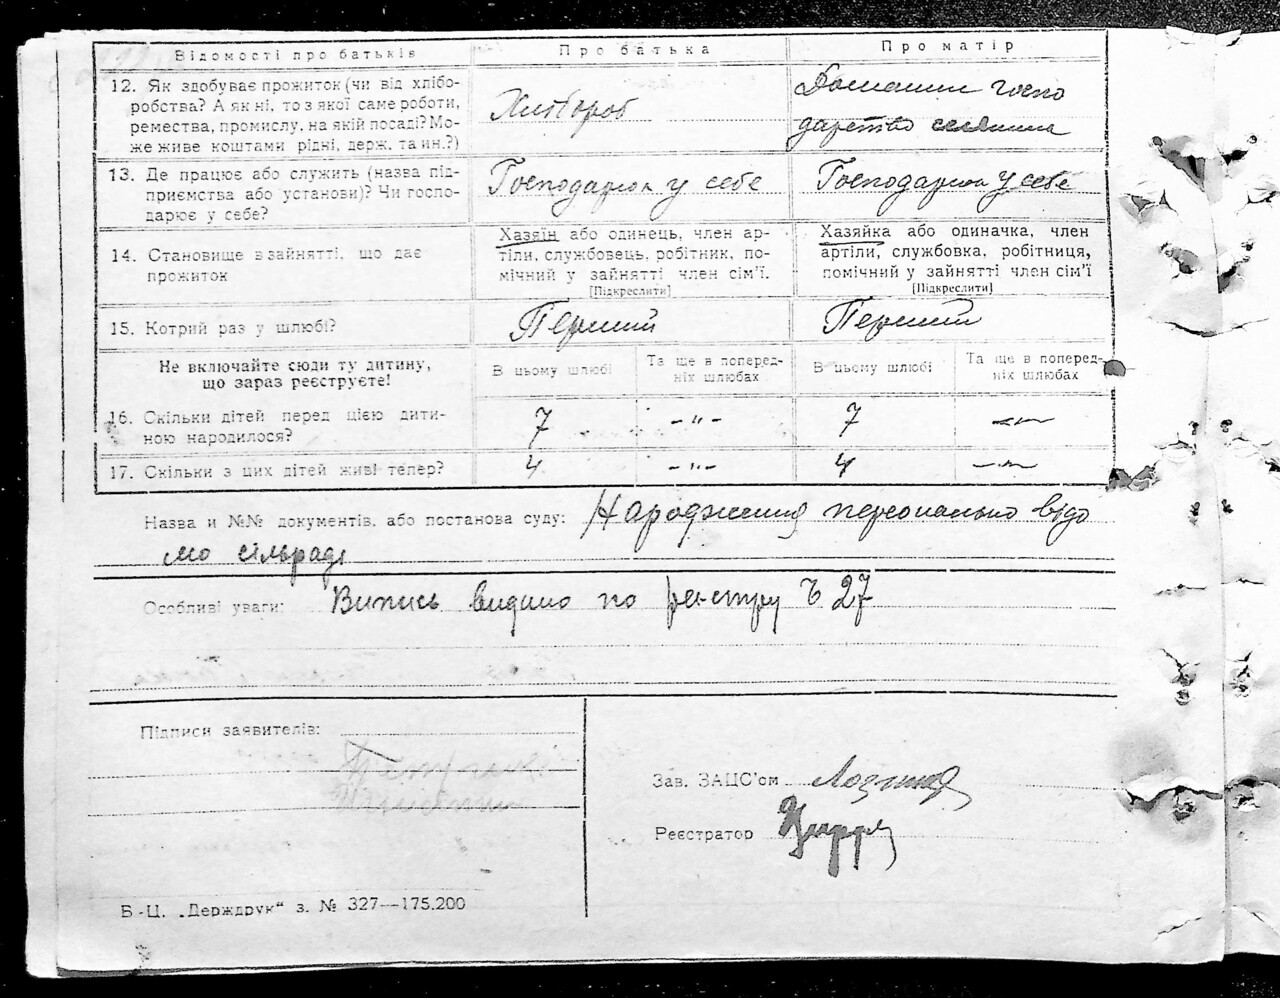 Відомості про батьків Про батька Про матір
12. Як здобуває прожиток (чи від хлібо-
робства? А як ні, то з якої саме роботи,
ремества, промислу, на якій посаді? Мо-
же живе коштами рідні, держ. та ин.?)
Хлібороб
Домашнє госпо
дарство селянина
13. Де працює або служить (назва під-
приємства або установи)? Чи госпо-
дарює у себе?
Господарює у себе
Господарює у себе
14. Становище в зайнятті, що дає
прожиток
Хазяїн або одинець, член ар-
тіли, службовець, робітник, по-
мічний у зайнятті член сім'ї.
[Підкреслити]
Хазяйка або одиначка, член
артіли, службовка, робітниця,
помічний у зайнятті член сім'ї
[Підкреслити]
15. Котрий раз у шлюбі? Перший Перший
Не включайте сюди ту дитину,
що зараз реєструєте!
В цьому шлюбі
Та ще в поперед-
ніх шлюбах
В цьому шлюбі
Та ще в поперед-
ніх шлюбах
16. Скільки дітей перед цією дити-
ною народилося?
7 -"- 7 -"-
17. Скільки з цих дітей живі тепер? 4 -"- 4 -"-
Назва и №№ документів, або постанова суду: Народження персонально відо
мо сільраді
Особливі уваги: Випись видано по реєстру Ч 27
Підписи заявителів:
Зав. ЗАЦС'ом
Реєстратор
Б.-Ц. „Держдрук“ з. № 327—175.200